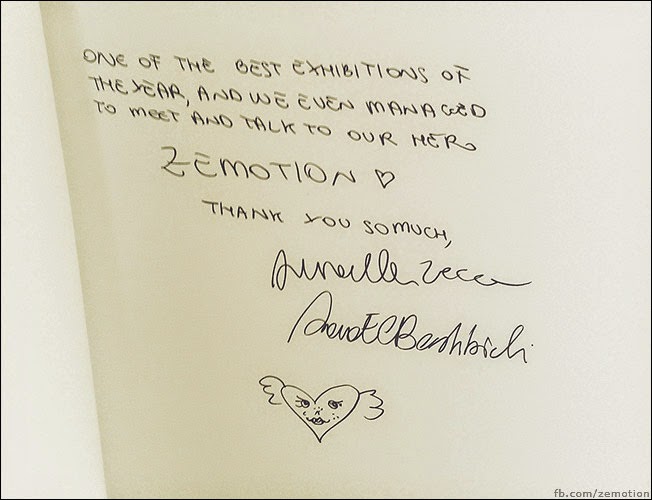 ONE OF THE BEST EXHIBITIONS OF
THE YEAR, AND WE EVEN MANAGED
TO MEET AND TALK TO OUR HERO
ZEMOTION ♡
THANK YOU SO MUCH,
fb.com/zemotion